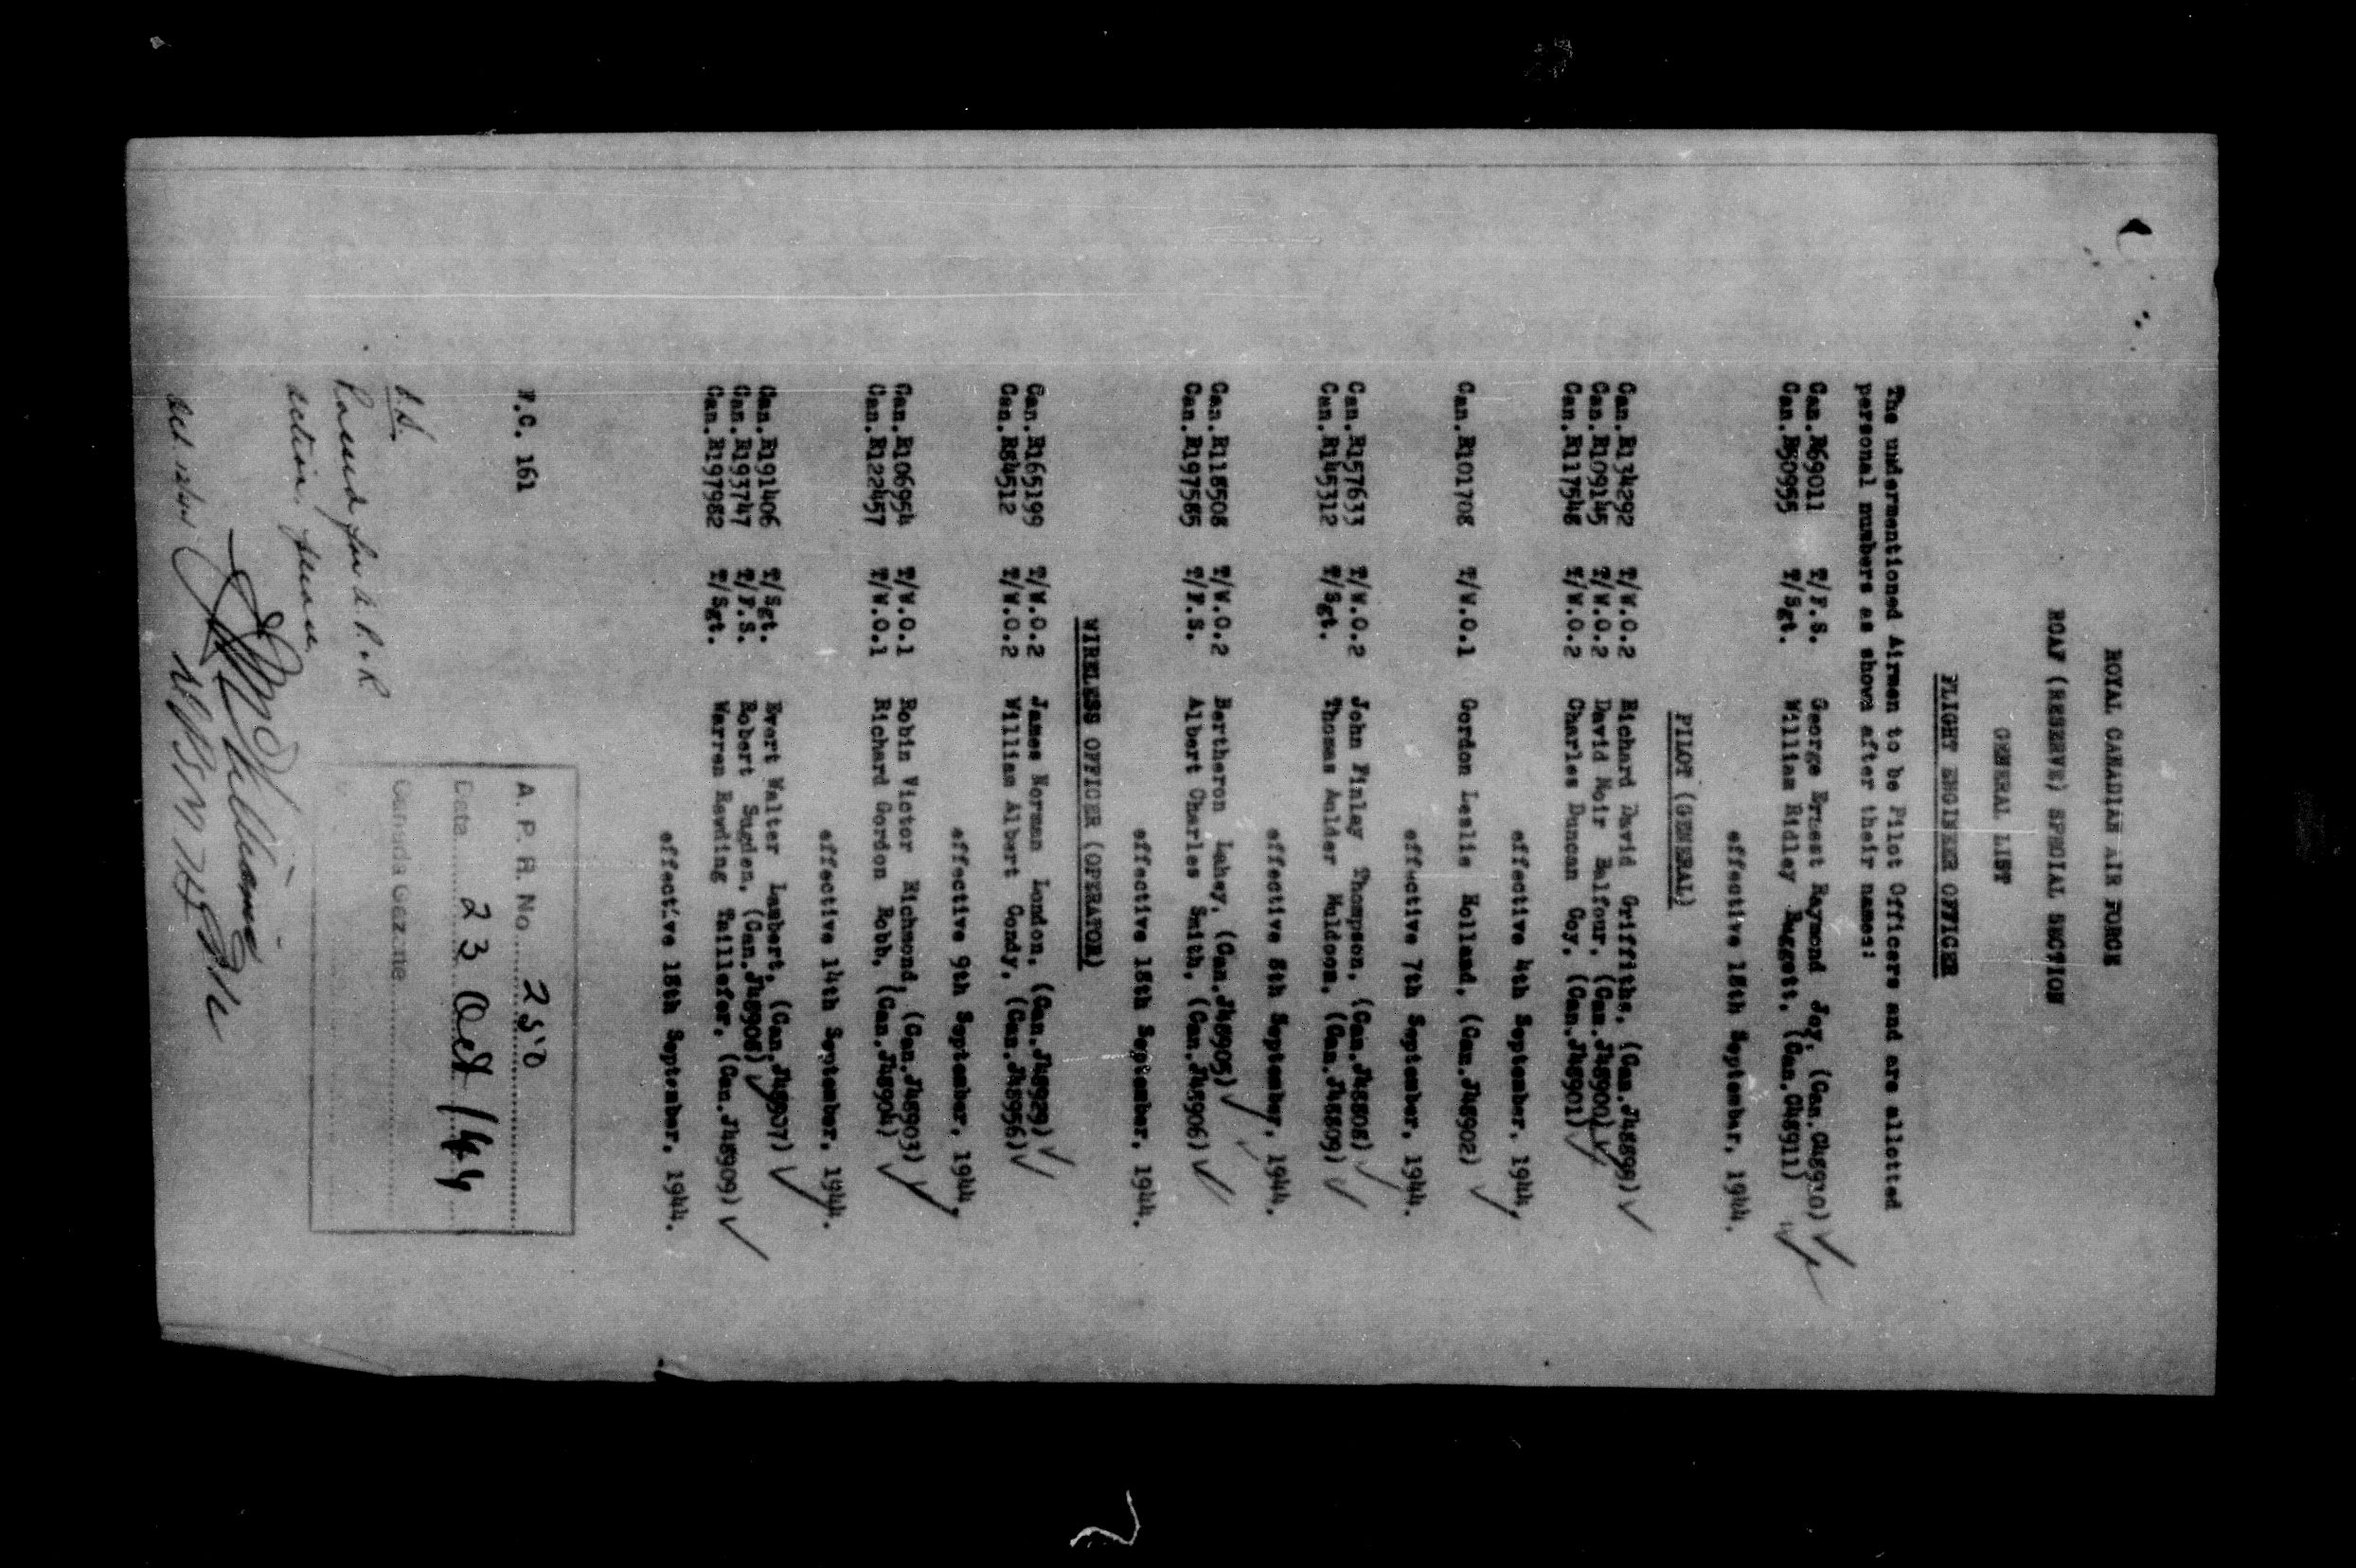 ROYAL CANADIAN AIR FORCE
RCAF (RESERVE) SPECIAL SECTION
GENERAL LIST
FLIGHT ENGINEER OFFICER
The undermentioned Airmen to be Pilot Officers and are allotted
personal numbers as shown after their names:
Can.R69011 T/F.S. George Ernest Raymond Joy, (Can.C48910)
Can.R50955 T/Sgt. William Ridley Huggett, (Can.C48911)
effective 18th September, 1944.
PILOT (GENERAL)
Can.R134292 T/W.O.2 Richard David Griffiths, (Can.J48899)
Can.R109145 T/W.O.2 David Moir Balfour, (Can.J48900)
Can.R117548 T/W.O.2 Charles Duncan Coy, (Can.J48901)
effective 4th September, 1944,
Can.R101708 T/W.O.1 Gordon Leslie Holland, (Can.J48902)
effective 7th September, 1944.
Can.R157633 T/W.O.2 John Finlay Thompson, (Can.J48808)
Can.R145312 T/Sgt. Thomas Aulder Muldoon, (Can.J48809)
effective 8th September, 1944.
Can.R118508 T/W.O.2 Bertheron Lahey, (Can.J48905)
Can.R197585 T/F.S. Albert Charles Smith, (Can.J48906)
effective 18th September, 1944.
WIRELESS OFFICER (OPERATOR)
Can.R165199 T/W.O.2 James Norman London, (Can.J48929)
Can.R84512 T/W.O.2 William Albert Condy, (Can.J48956)
effective 9th September, 1944,
Can.R106954 T/W.O.1 Robin Victor Richmond, (Can.J48903)
Can.R122457 T/W.O.1 Richard Gordon Robb, (Can.J48904)
effective 14th September, 1944.
Can.R191406 T/Sgt. Evert Walter Lambert, (Can.J48907)
Can.R193747 T/F.S. Robert Sugden, (Can.J48908)
Can.R197982 T/Sgt. Warren Hawding Taillefer, (Can.J48909)
effective 18th September, 1944.
F.C. 161
A. P. R. No. 250
Date 23 Oct/44
Canada Gazette
Passed for A.P.R
action please